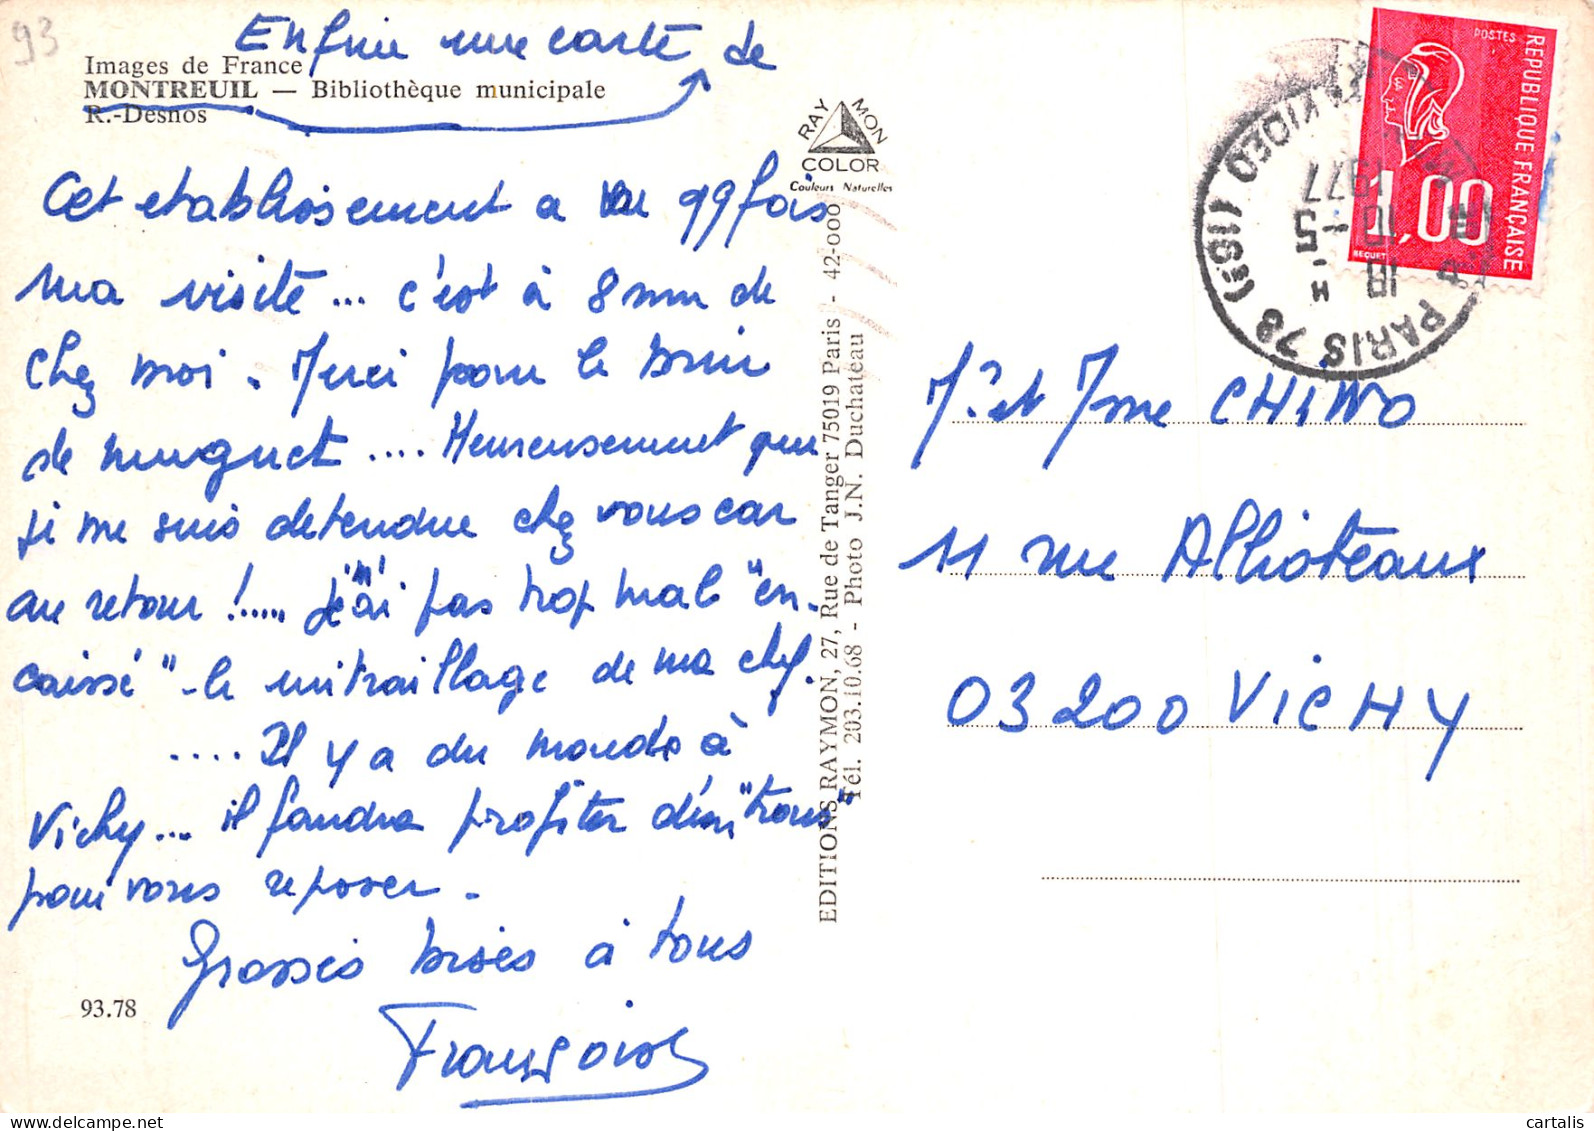 93
Enfin une carte de
Images de France
MONTREUIL — Bibliothèque municipale
R.-Desnos
Cet etablissement a vu 99 fois
ma visite... c'est à 8 mn de
chez moi. Merci pour le brin
de muguet .... Heureusement que
je me suis detendue chez vous car
au retour !..... j'ai pas trop mal "en-
caissé" - le mitraillage de ma chef.
.... Il y a du monde à
Vichy... il faudra profiter d'un "trou"
pour vous reposer.
Grosses bises à tous
Françoise
93.78
RAYMON
COLOR
Couleurs Naturelles
EDITIONS RAYMON, 27, Rue de Tanger 75019 Paris - 42-000
Tél. 203.10.68 - Photo J.N. Duchateau
POSTES
REPUBLIQUE FRANÇAISE
1,00
BEQUET
PARIS 78 (18e)
18 H
10 - 5
1977
Mr et Mme CHINO
11 rue Allioteaux
03200 VICHY
cartalis
www.delcampe.net